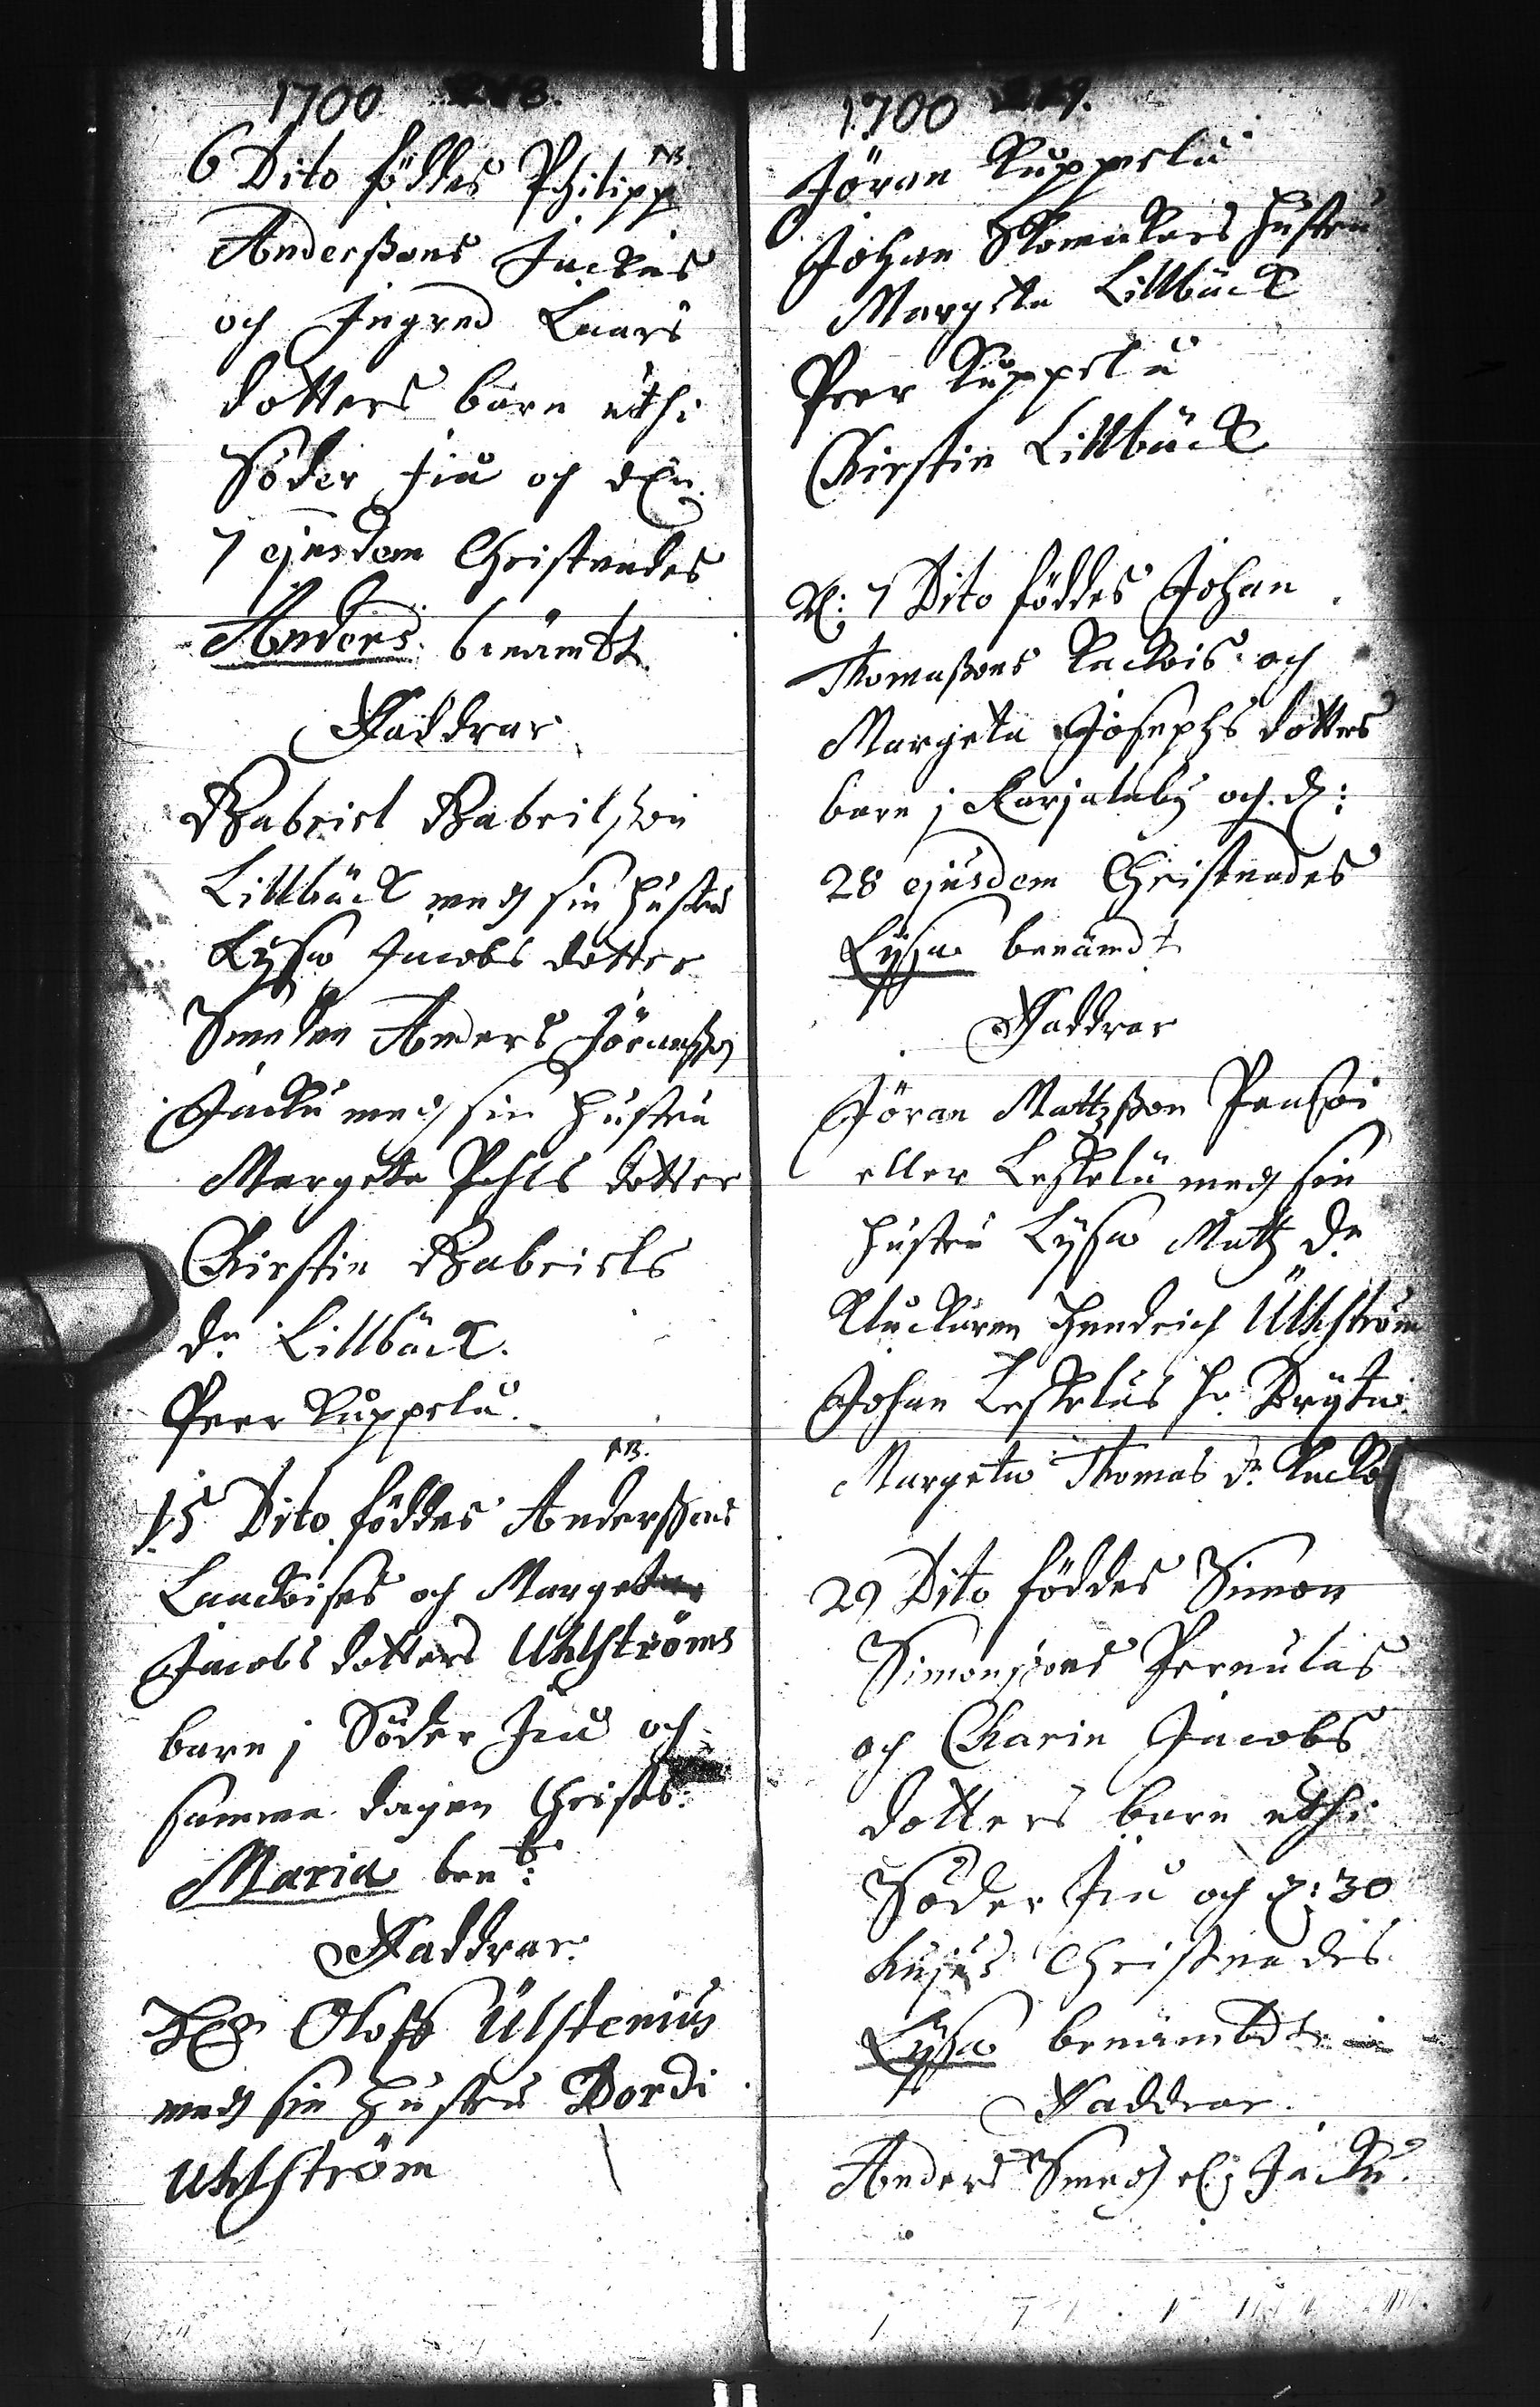 1700
6 Dito föddes Philipp NB.
Anderßons Jackus
och Ingred Laars
dotters barn uthi
Söder Jiu och den
7 ejusdem Christnades
Anders benämdt
Faddrar
Gabriel Gabrilßon
Lillbäck medh sin hustru
Lysa Jacobs dotter
Smeden Anders Jöranßon
Jacku medh sin hustru
Margeta Pehls dotter
Kirstin Gabriels
dr Lillbäck.
Peer Kuppelu.
NB.
15 Dito föddes Anderßons
Laackoises och Margeta
Jacobs dotters Uhlströms
barn j Söder Jiu och
samma dagen Christs:
Maria bent:
Faddrar.
Oloff Ulstenius
medh sin hustru Bordi
Uhlström
1700
Jöran Kuppelu
Johan Skomakars hustru
Margeta Lillbäck
Peer Kuppelu
Kirstin Lillbäck
D: 7 Dito föddes Johan
Thomaßons Kackois och
Margeta Josephs dotters
barn j Karjalaby och d:
28 ejusdem Christnades
Lysa benämdt
Faddrar
Jöran Mattzßon
eller Leskelä medh sin
hustru Lysa Matz dr
Kluckaren Hendrich Uhlström
Johan Leskeläs h. Brÿta
Margeta Thomas dr
29 Dito föddes Simon
Simonßons Pernulas
och Karin Jacobs
dotters barn uthi
Söder Jiu och d: 30
hujus Christnades
Lysa benämbdt
Faddrar.
Anders Smedh Jacku.